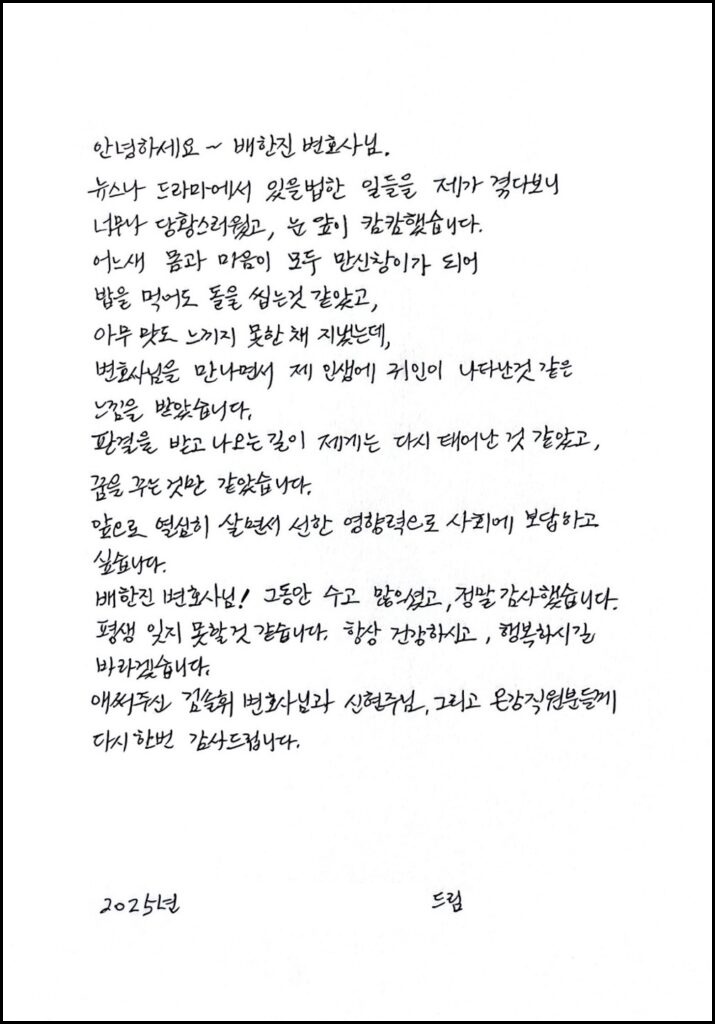 안녕하세요~ 배한진 변호사님.
뉴스나 드라마에서 있을법한 일들을 제가 겪다보니
너무나 당황스러웠고, 눈 앞이 캄캄했습니다.
어느새 몸과 마음이 모두 만신창이가 되어
밥을 먹어도 돌을 씹는것 같았고,
아무 맛도 느끼지 못한 채 지냈는데,
변호사님을 만나면서 제 인생에 귀인이 나타난것 같은
느낌을 받았습니다.
판결을 받고 나오는 길이 제게는 다시 태어난 것 같았고,
꿈을 꾸는 것만 같았습니다.
앞으로 열심히 살면서 선한 영향력으로 사회에 보답하고
싶습니다.
배한진 변호사님! 그동안 수고 많으셨고, 정말 감사했습니다.
평생 잊지 못할것 같습니다. 항상 건강하시고, 행복하시길
바라겠습니다.
애써주신 김슬휘 변호사님과 신현주님, 그리고 온강직원분들께
다시 한번 감사드립니다.
2025년 드림